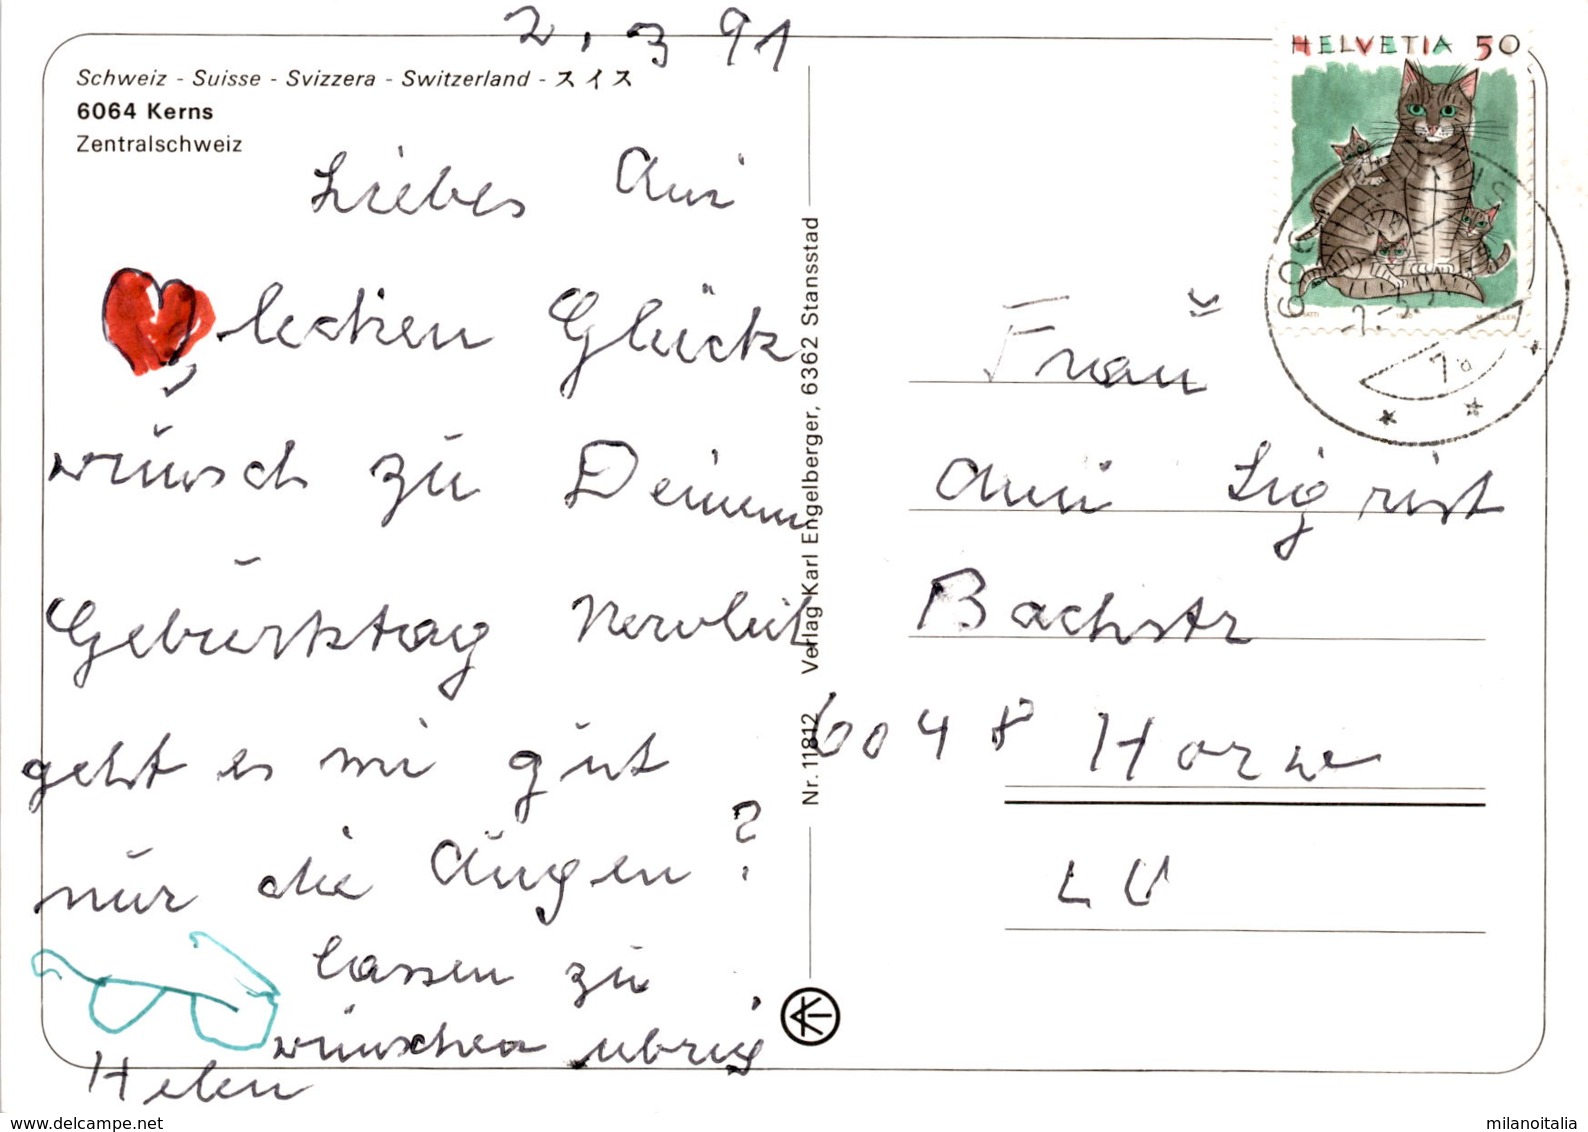 2. 3 91
Schweiz - Suisse - Svizzera - Switzerland - スイス
6064 Kerns
Zentralschweiz
Liebes Anni
lecken Glück
wünsch zu Deinem
Geburktag Nervlich
geht es mir gut
nur die Augen ?
lassen zu
wünschen übrig
Helen
Nr. 11812 Verlag Karl Engelberger, 6362 Stansstad
HELVETIA 50
Frau
Anni Sigrist
Bachstr
6048 Horw
LU
www.delcampe.net
milanoitalia